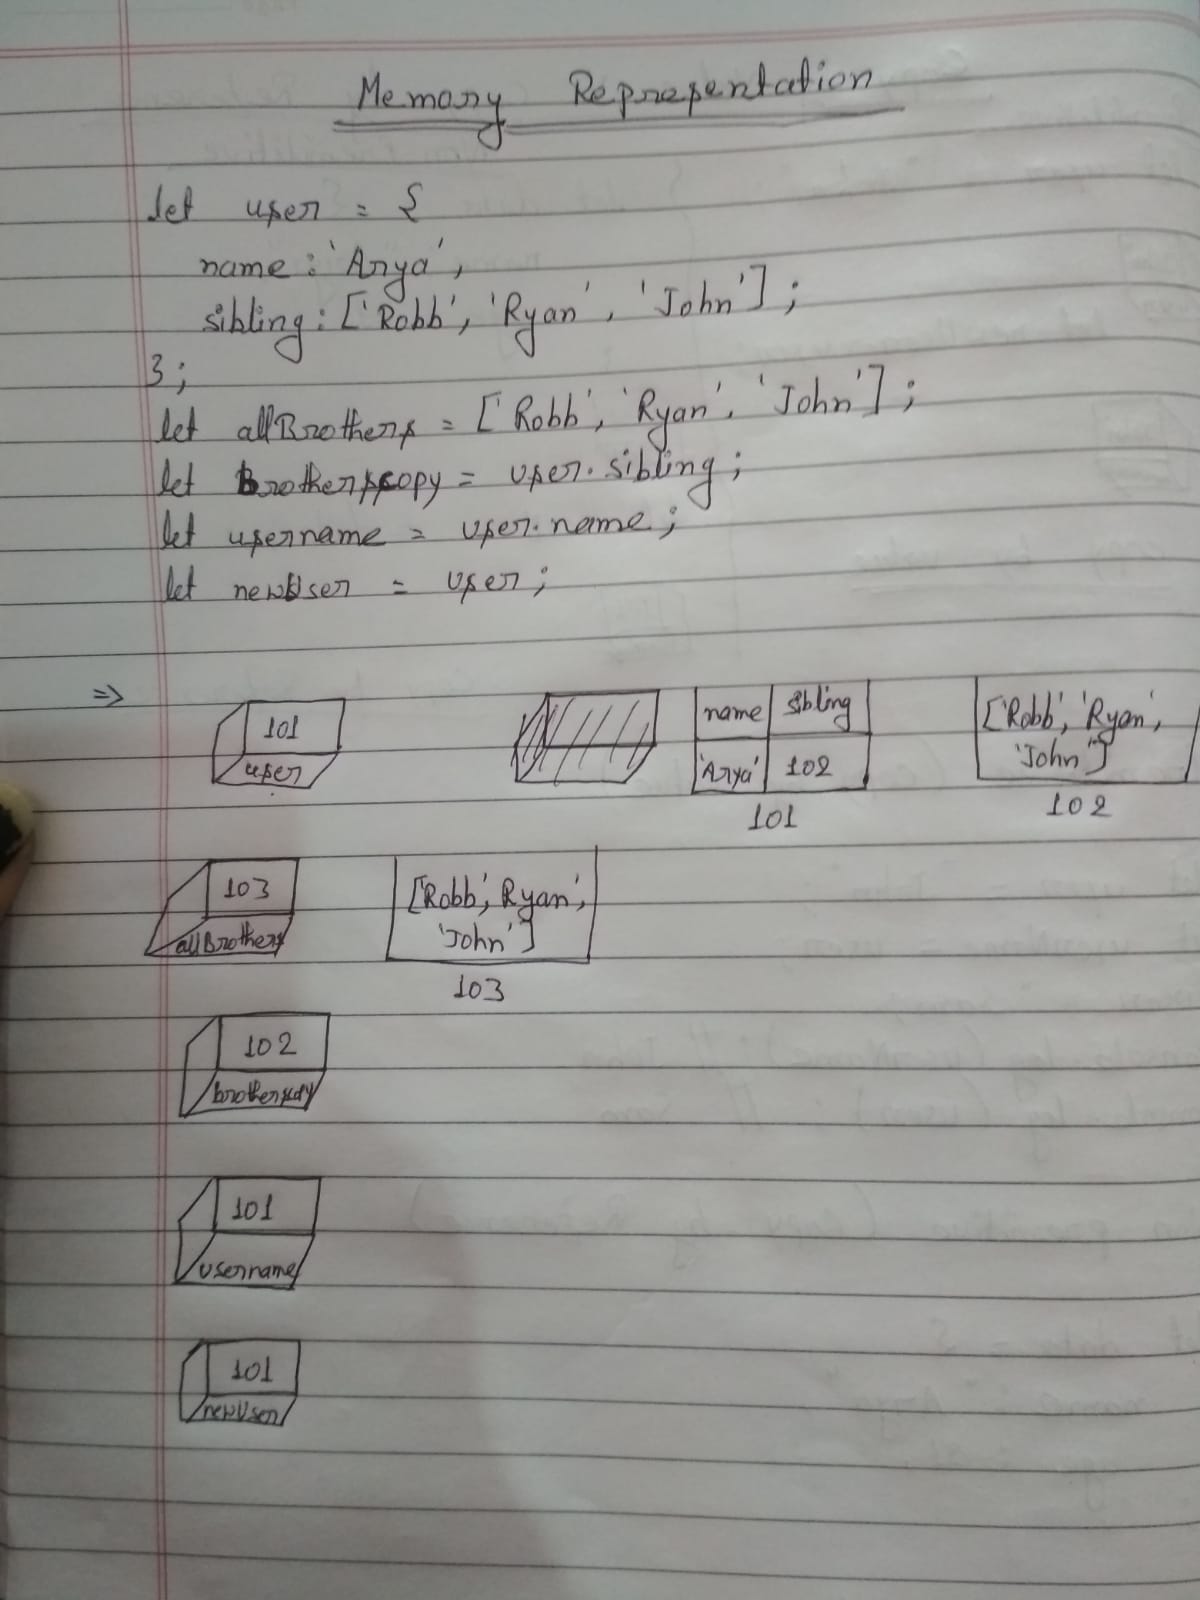 Memory Representation
let user = {
name : 'Arya',
sibling : ['Robb', 'Ryan', 'John'];
};
let allBrothers = ['Robb', 'Ryan', 'John'];
let Brotherscopy = user.sibling;
let username = user.name;
let newUser = user;
=>
101
user
name sibling
'Arya' 102
101
['Robb', 'Ryan',
'John']
102
103
allBrothers
['Robb', Ryan',
'John']
103
102
brotherscopy
101
username
101
newUser